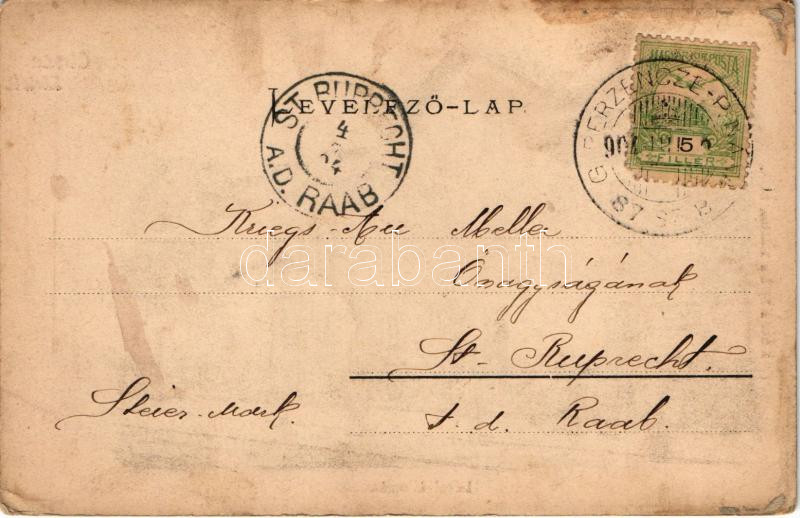 LEVELEZŐ-LAP
MAGYAR KIR. POSTA
5
FILLER
ST. RUPRECHT
4
A.D. RAAB
G. BERZENCZE-P.
904
87 SZ. B
Kriegs-Meller
Önagyságának
St- Ruprecht.
Steier-Mark. t. d. Raab.
darabanth